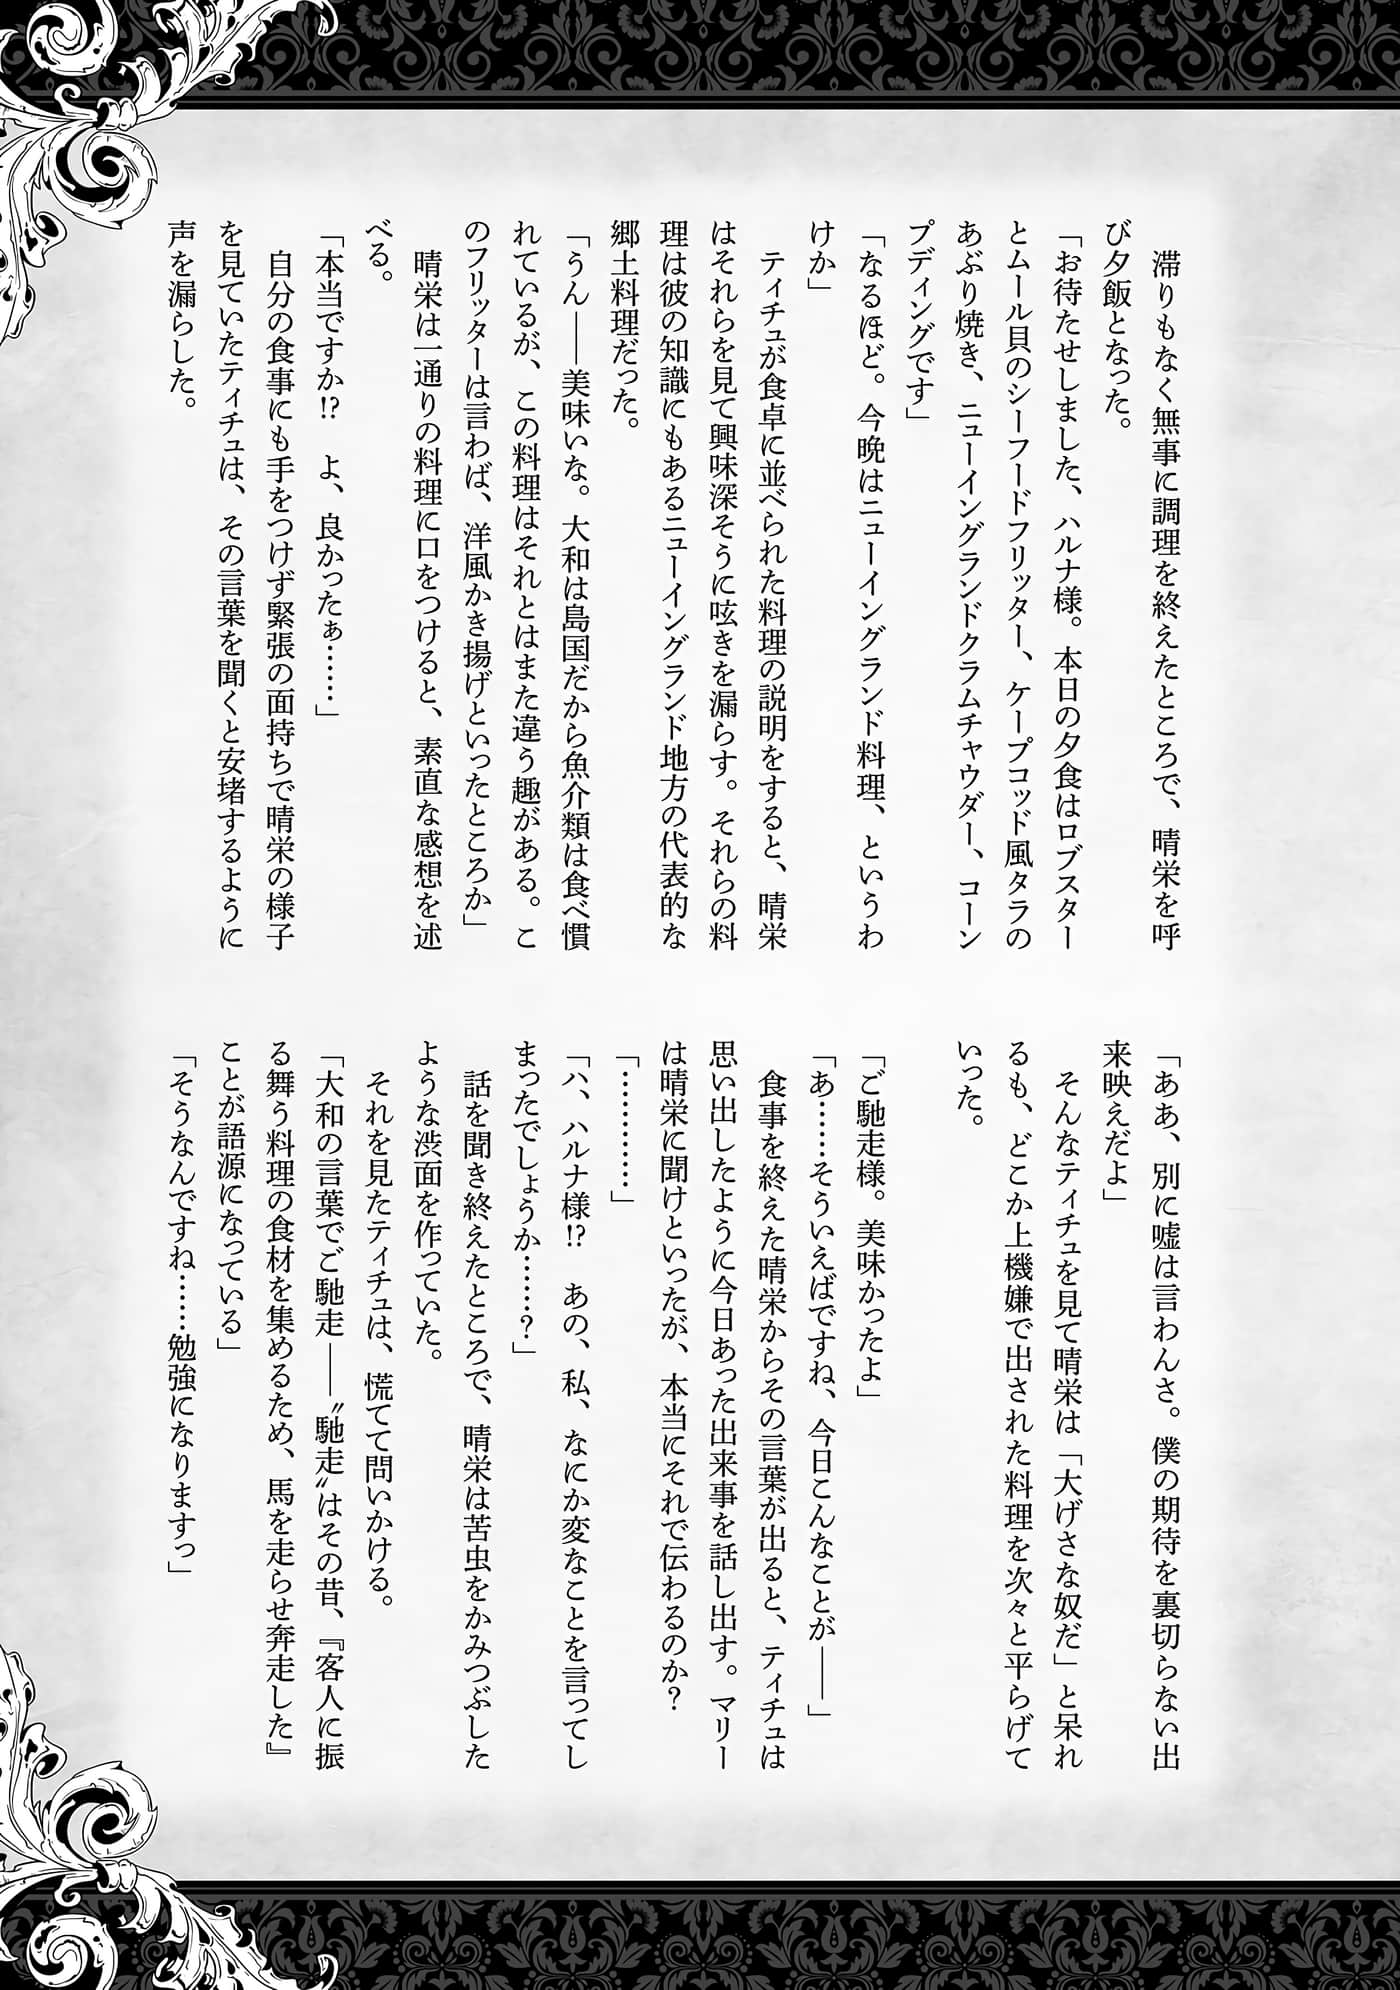 滞りもなく無事に調理を終えたところで、晴栄を呼
び夕飯となった。
「お待たせしました、ハルナ様。本日の夕食はロブスター
とムール貝のシーフードフリッター、ケープコッド風タラの
あぶり焼き、ニューイングランドクラムチャウダー、コーン
プディングです」
「なるほど。今晩はニューイングランド料理、というわ
けか」
ティチュが食卓に並べられた料理の説明をすると、晴栄
はそれらを見て興味深そうに呟きを漏らす。それらの料
理は彼の知識にもあるニューイングランド地方の代表的な
郷土料理だった。
「うん――美味いな。大和は島国だから魚介類は食べ慣
れているが、この料理はそれとはまた違う趣がある。こ
のフリッターは言わば、洋風かき揚げといったところか」
晴栄は一通りの料理に口をつけると、素直な感想を述
べる。
「本当ですか!?　よ、良かったぁ……」
自分の食事にも手をつけず緊張の面持ちで晴栄の様子
を見ていたティチュは、その言葉を聞くと安堵するように
声を漏らした。
「ああ、別に嘘は言わんさ。僕の期待を裏切らない出
来映えだよ」
そんなティチュを見て晴栄は「大げさな奴だ」と呆れ
るも、どこか上機嫌で出された料理を次々と平らげて
いった。
「ご馳走様。美味かったよ」
「あ……そういえばですね、今日こんなことが――」
食事を終えた晴栄からその言葉が出ると、ティチュは
思い出したように今日あった出来事を話し出す。マリー
は晴栄に聞けといったが、本当にそれで伝わるのか？
「…………」
「ハ、ハルナ様!?　あの、私、なにか変なことを言ってし
まったでしょうか……？」
話を聞き終えたところで、晴栄は苦虫をかみつぶした
ような渋面を作っていた。
それを見たティチュは、慌てて問いかける。
「大和の言葉でご馳走――〝馳走〟はその昔、『客人に振
る舞う料理の食材を集めるため、馬を走らせ奔走した』
ことが語源になっている」
「そうなんですね……勉強になりますっ」